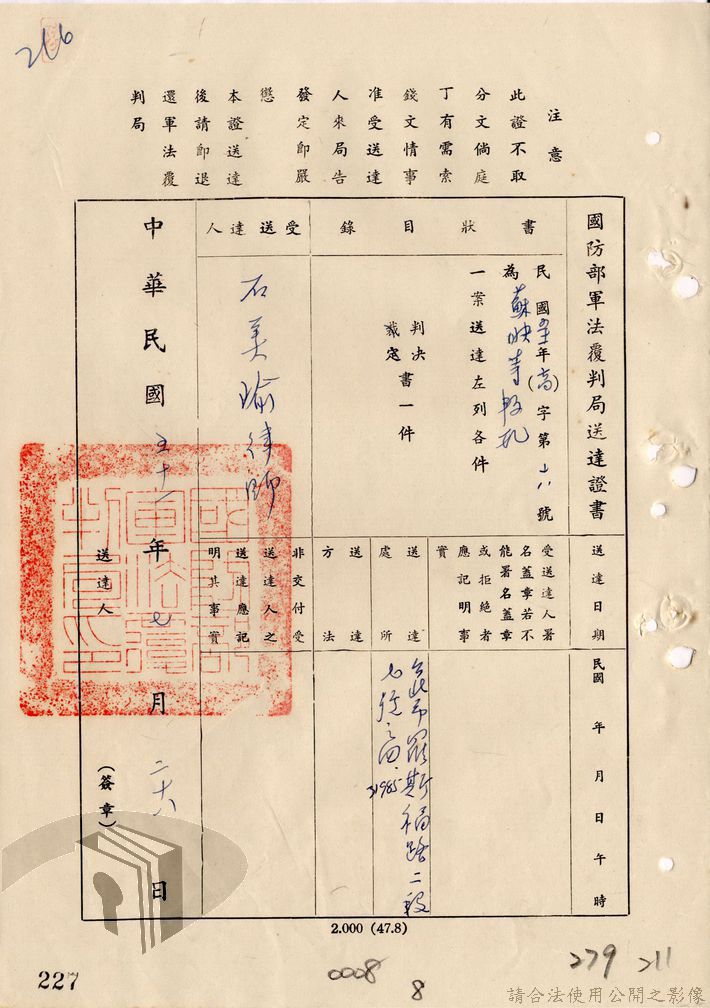 266
注意
此證不取
分文倘庭
丁有需索
錢文情事
准受送達
人來局告
發定即嚴
懲
本證送達
後請即退
還軍法覆
判局
國防部軍法覆判局送達證書
書狀目錄
民國 年(高)字第 號
為蘇映
一案送達左列各件
判決
裁定
書一件
受送達人
石美瑜律師
送達日期
民國 年 月 日 午 時
受送達人署
名蓋章若不
能署名蓋章
或拒絕者
應記明事
實
送達處所
台北市羅斯福路二段
七 號之四
送達方法
非交付受
送達人之
送達應記
明其事實
中華民國五十一年七月二十六日
送達人
(簽章)
國防部軍法覆判局印
2.000 (47.8)
227
0008
8
279
211
請合法使用公開之影像